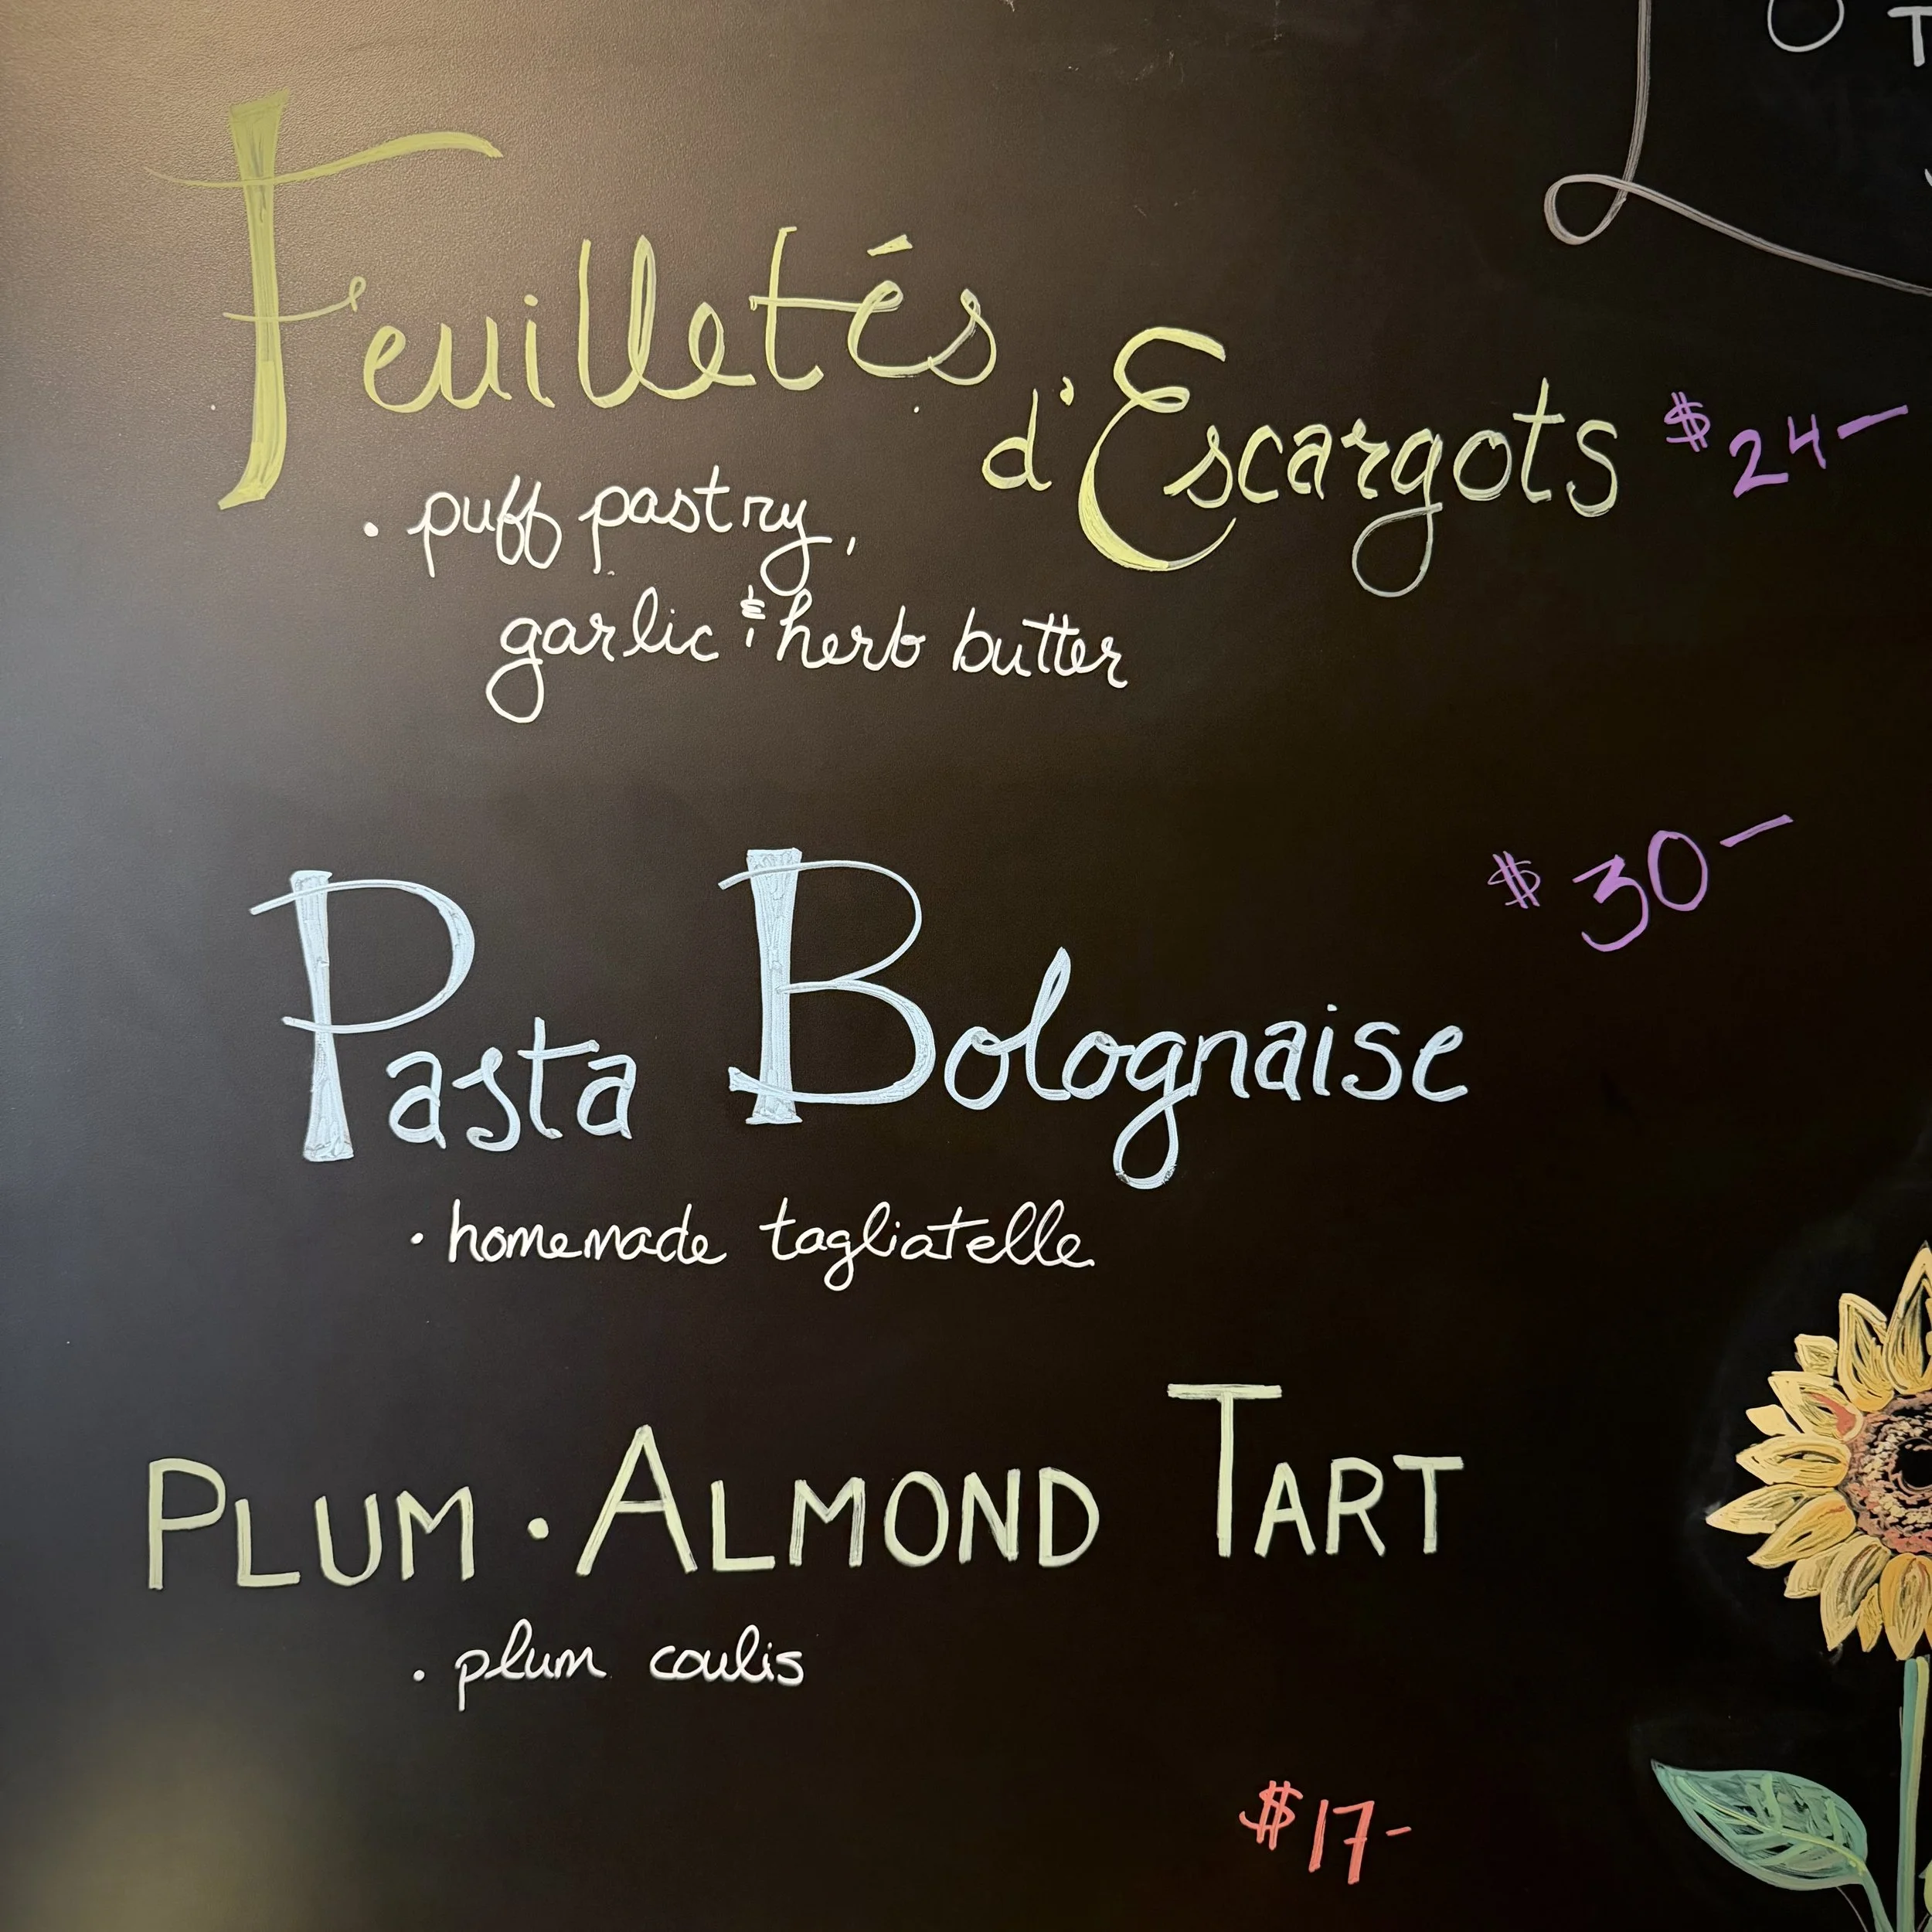 Feuilletés
d'Escargots $24-
· puff pastry,
garlic & herb butter
$30-
Pasta Bolognaise
· homemade tagliatelle
PLUM · ALMOND TART
· plum coulis
$17-